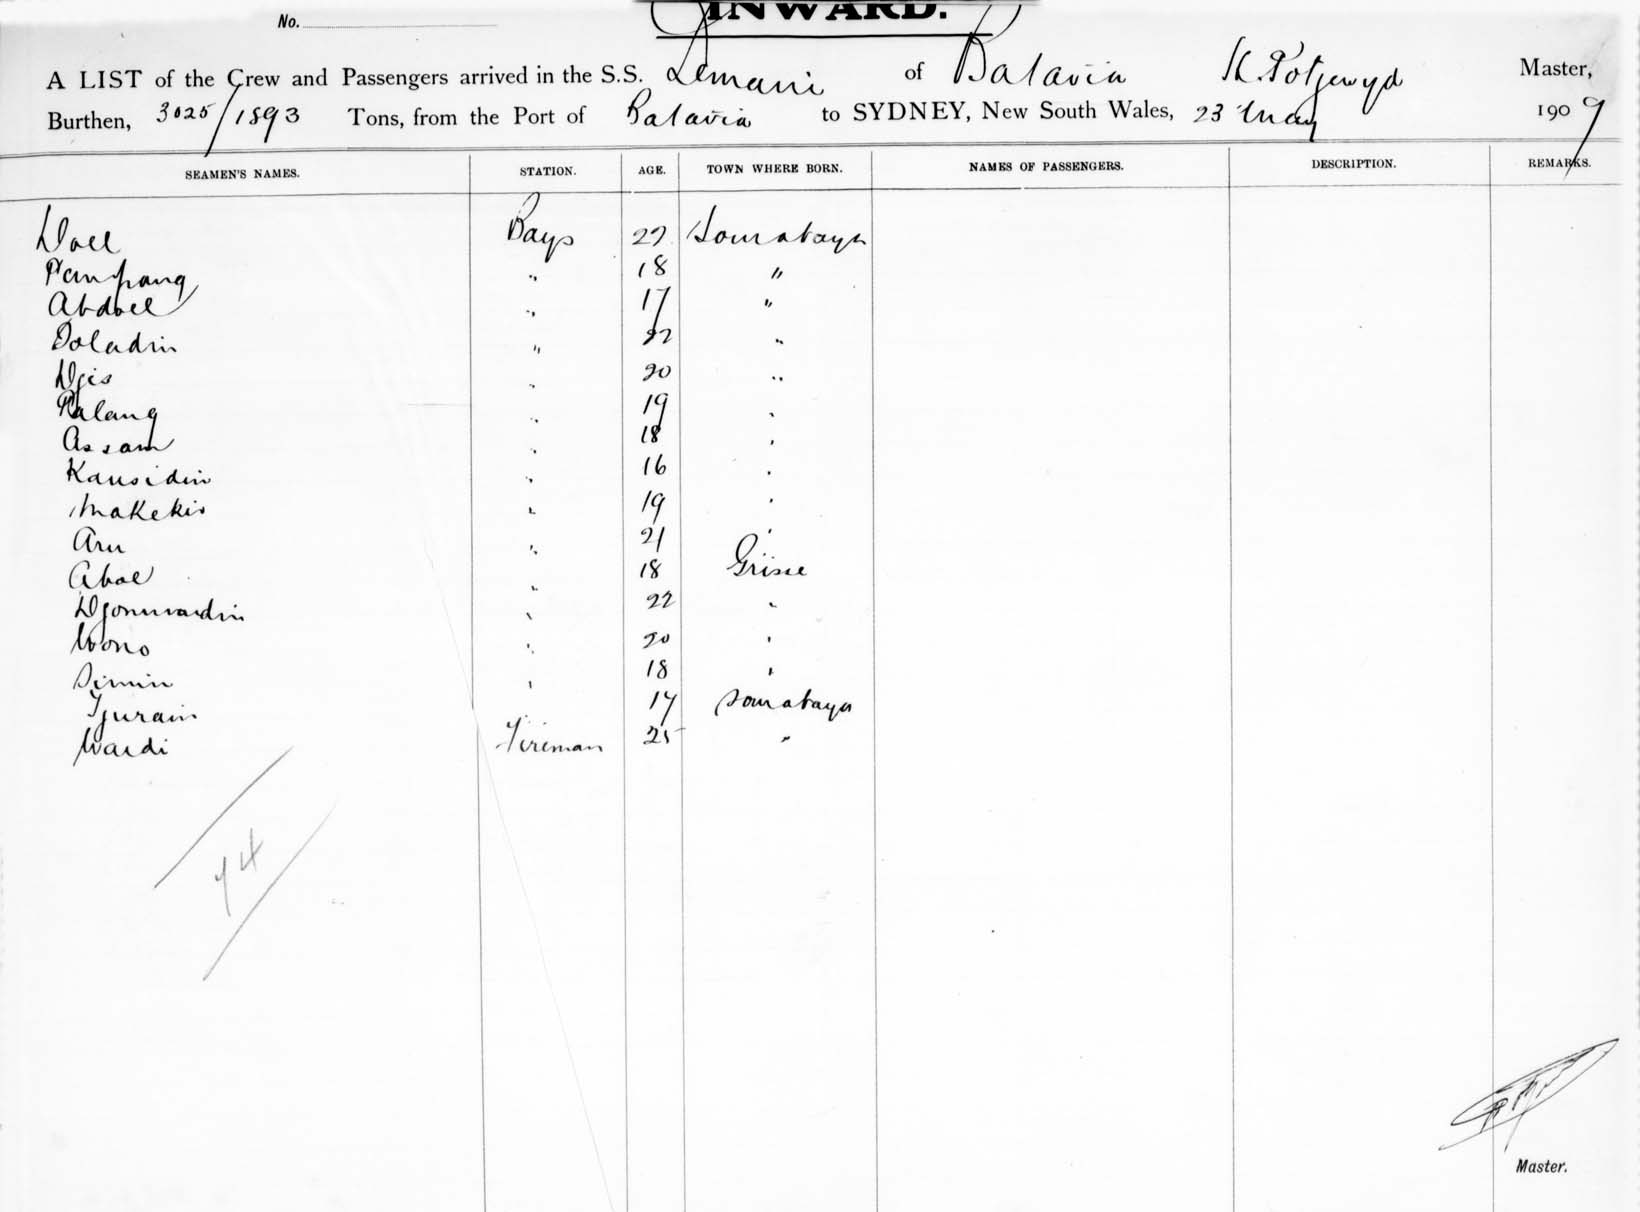 INWARD.
No.
A LIST of the Crew and Passengers arrived in the S.S. Lemani of Batavia K. Potjewyd Master,
Burthen, 3025/1893 Tons, from the Port of Batavia to SYDNEY, New South Wales, 23 May 1909
SEAMEN'S NAMES. STATION. AGE. TOWN WHERE BORN. NAMES OF PASSENGERS. DESCRIPTION. REMARKS.
Doel Bays 27 Sourabaya
Pampang " 18 "
Abdoel " 17 "
Doladin " 22 "
Djis " 20 "
Palang " 19 "
Assam " 18 "
Kausidin " 16 "
Makekis " 19 "
Aru " 21 "
Aboe " 18 Grisse
" 22 "
Wono " 20 "
Simin " 18 "
Tjurain " 17 Sourabaya
Wardi Fireman 25 "
74
Master.